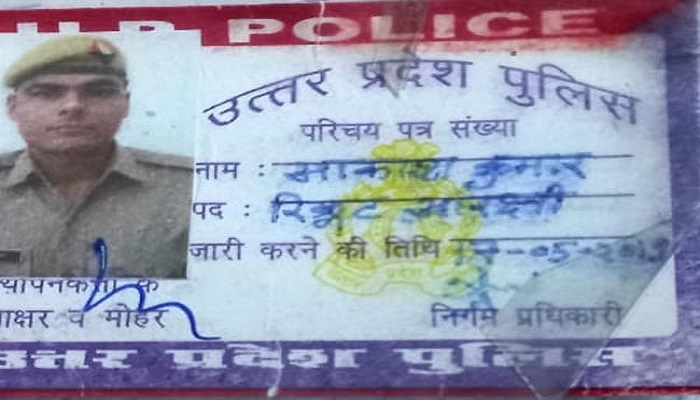 U.P. POLICE
उत्तर प्रदेश पुलिस
परिचय पत्र संख्या
नाम : आकाश कुमार
पद : रिक्रूट आरक्षी
जारी करने की तिथि -05-2019
साक्षर व मोहर
निर्गम प्रधिकारी
उत्तर प्रदेश पुलिस